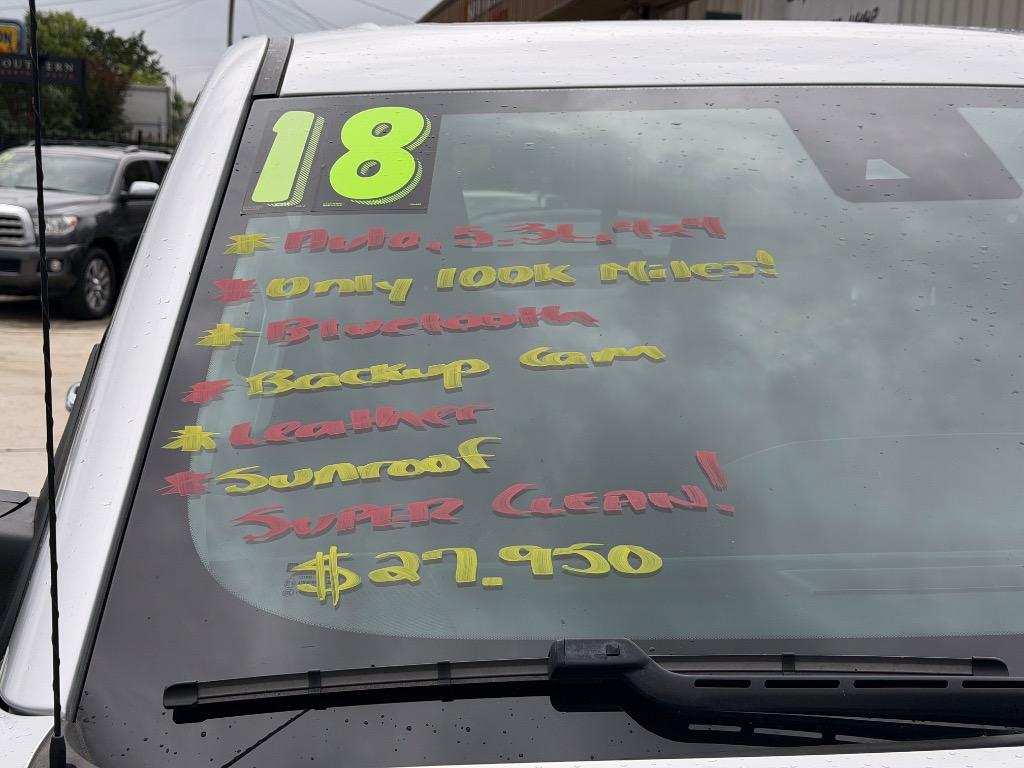 OUTHERN
18
Auto, 5.3L, 4x4
Only 100K Miles!
Bluetooth
Backup Cam
Leather
Sunroof
SUPER CLEAN!
$27.950